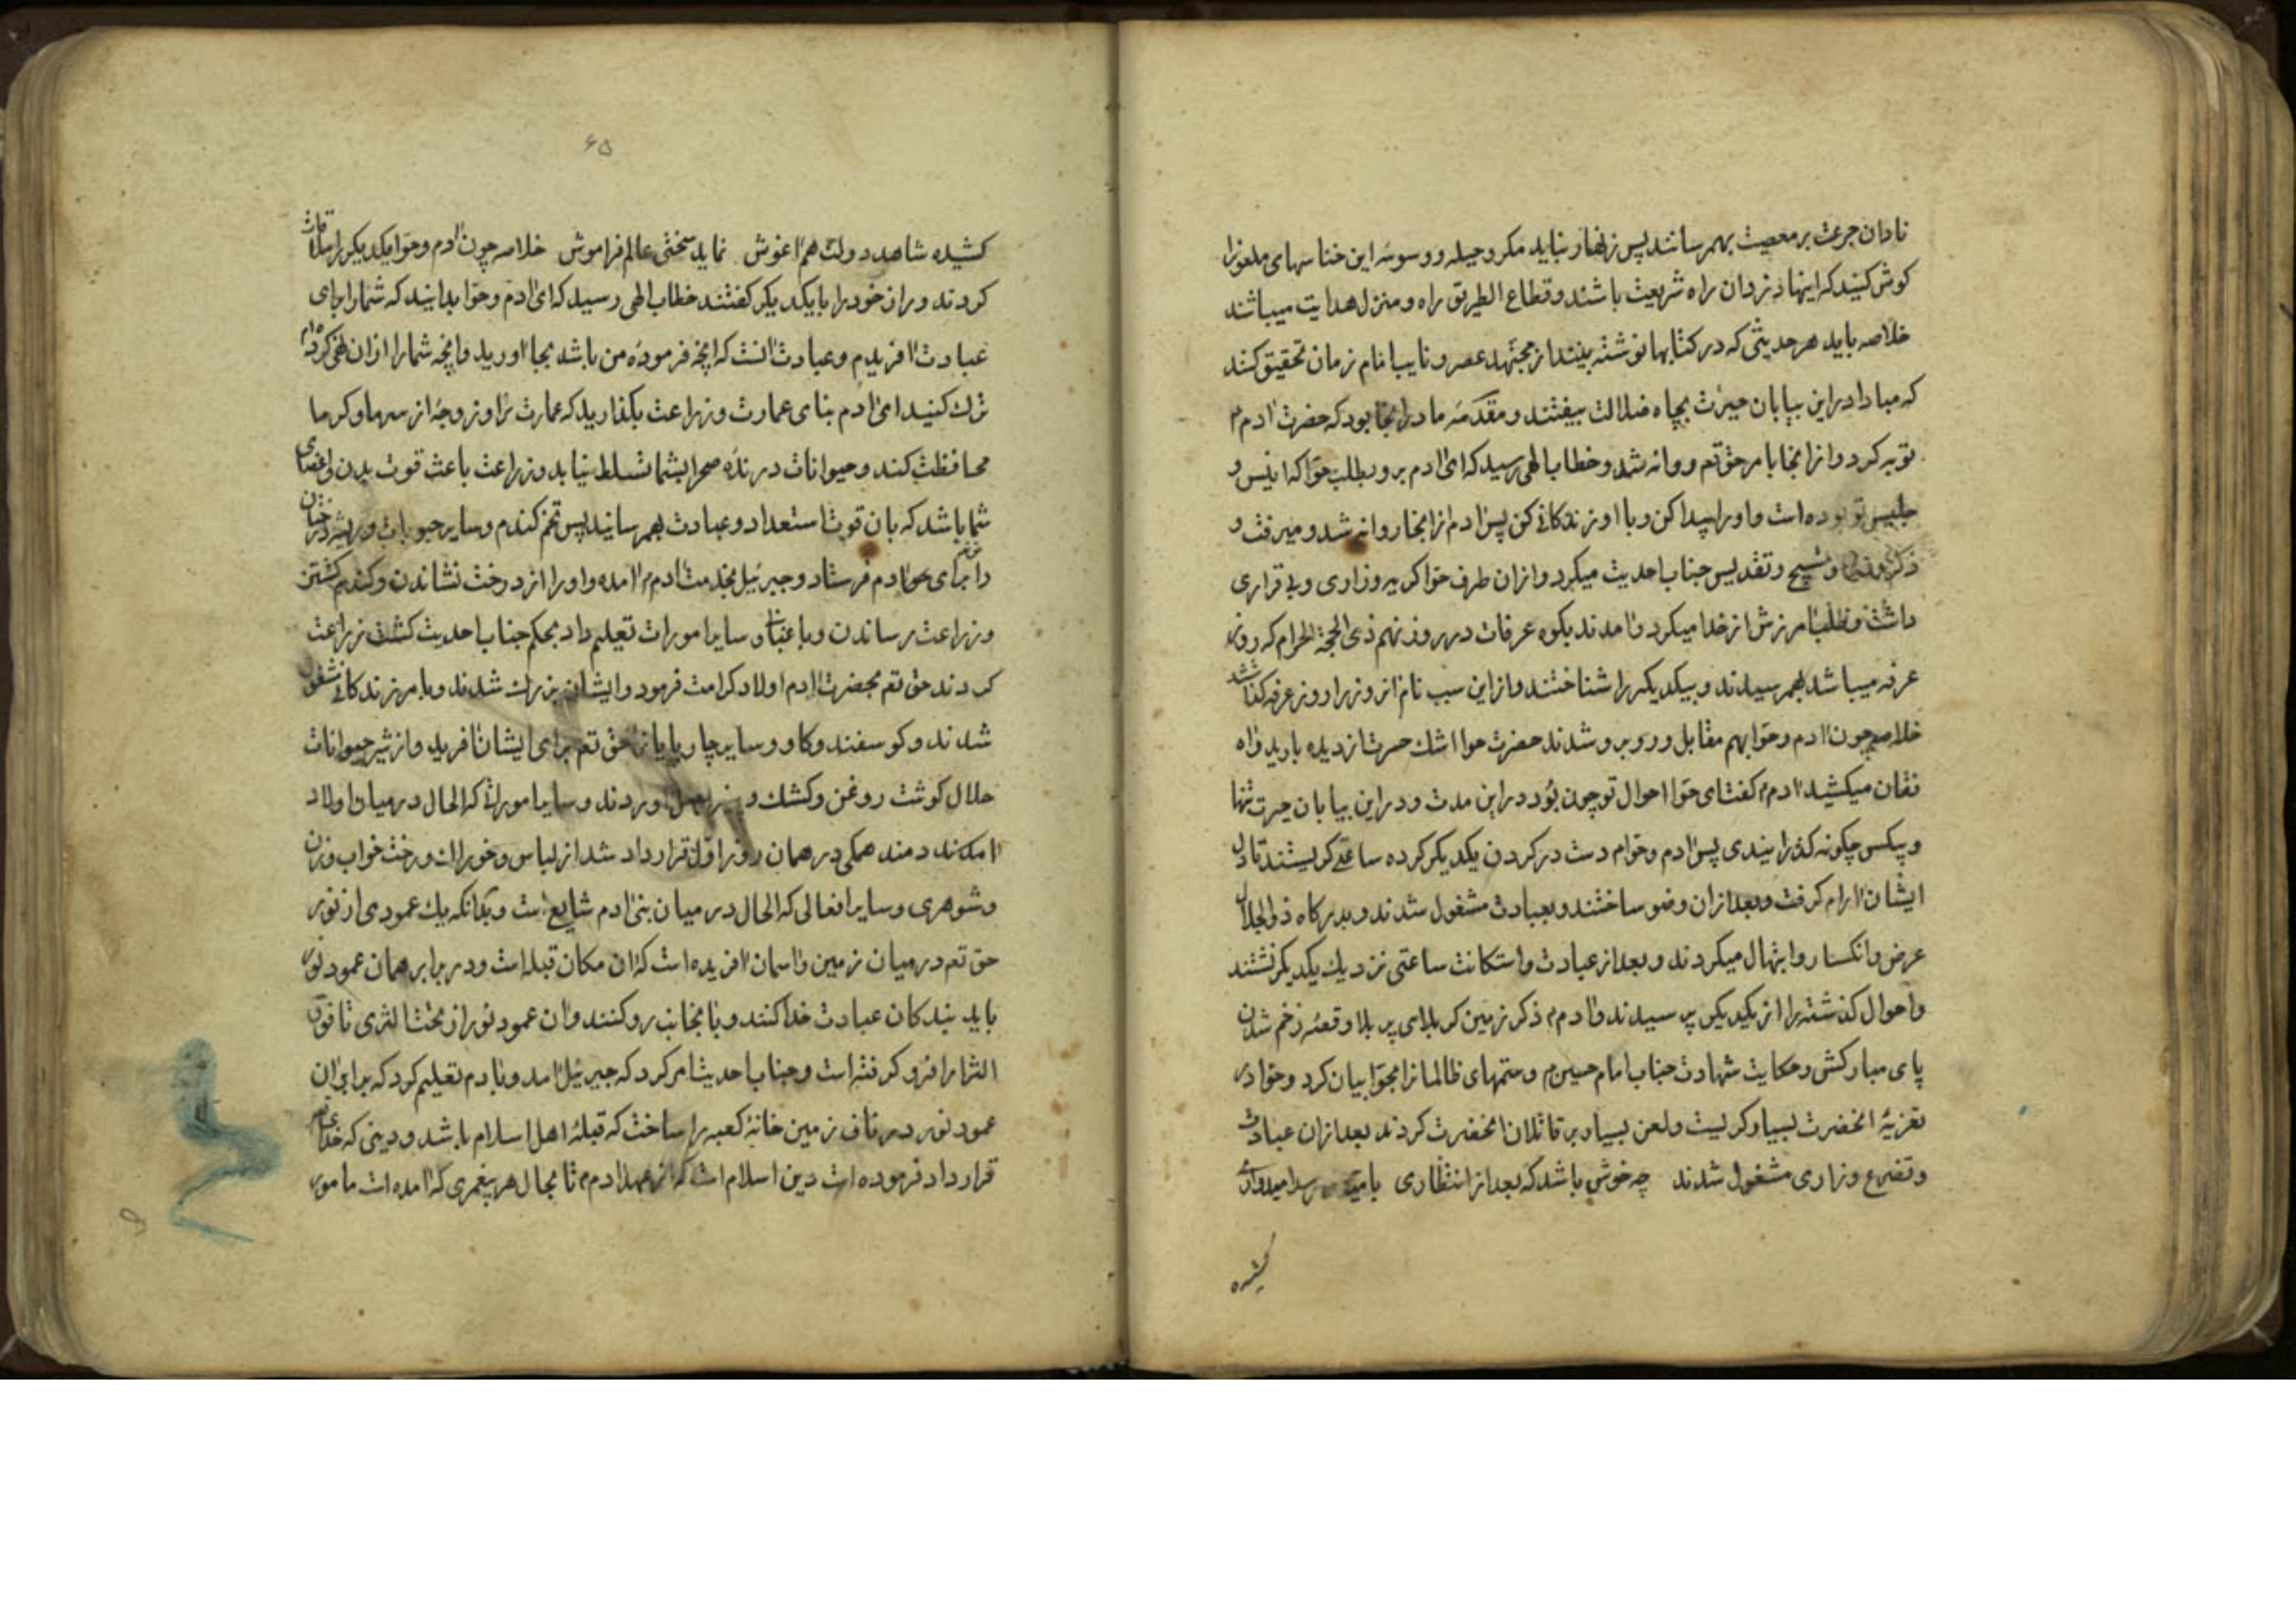 نادان جرعت بر معصیت بهمرسانند پس زنهار بناید مکر و حیله و وسوسهٔ این خناسهای ملعونرا
کوش کنید که اینها دزدان راه شریعت باشند و قطاع الطریق راه و منزل هدایت میباشند
خلاصه باید هر حدیثی که در کتابها نوشته بینند از مجتهد عصر و نایب امام زمان تحقیق کنند
که مبادا در این بیابان حیرت بچاه ضلالت بیفتند و مقدمهٔ ما در اینجا بود که حضرت ادم م
توبه کرد و از انجا بامر حق تعم روانه شد و خطاب الهی رسید که ای ادم برو بطلب حوا که انیس و
جلیس تو بوده است و او را پیدا کن و با او زندکانی کن پس ادم از انجا روانه شد و میرفت و
ذکر و تسبیح و تقدیس جناب احدیت میکرد و از ان طرف حوا کریه و زاری و بی قراری
داشت و طلب امرزش از خدا میکرد و امدند بکوه عرفات در روز نهم ذی الحجة الحرام که روز
عرفه میباشد بهمرسیدند و بیکدیکر را شناختند و از این سبب نام انروز را روز عرفه کذاشتند
خلاصه چون ادم و حوا بهم مقابل و روبرو شدند حضرت حوا اشک حسرت از دیده بارید و اه
فغان میکشید ادم م کفت ای حوا احوال تو چون بود در این مدت و در این بیابان حیرت تنها
و بیکس چکونه کذرانیدی پس ادم و حوا م دست در کردن یکدیکر کرده ساعتی کریستند تا دل
ایشان ارام کرفت و بعد از ان وضو ساختند و بعبادت مشغول شدند و بدرکاه ذو الجلال
عرض و انکسار و ابتهال میکردند و بعد از عبادت و استکانت ساعتی نزدیک یکدیکر نشتند
و احوال کذشته را از یکدیکر پرسیدند و ادم م ذکر زمین کربلای پر بلا و قعهٔ زخم شدن
پای مبارکش و حکایت شهادت جناب امام حسین م و ستمهای ظالمانرا بحوا بیان کرد و حوا در
تعزیهٔ انحضرت بسیار کریست و لعن بسیار بر قاتلان انحضرت کردند بعد از ان عبادت
و تضرع و زاری مشغول شدند چه خوش باشد که بعد از انتظاری بامید رسد امیدواری
کشیده
۶۵
کشیده شاهد دولت هم اغوش نماید سختی عالم فراموش خلاصه چون ادم و حوا یکدیکر را ملاقات
کردند و راز خود را با یکدیکر کفتند خطاب الهی رسید که ای ادم و حوا بدانید که شما را برای
عبادت افریدم و عبادت انست که انچه فرموده من باشد بجا اورید و انچه شما را از ان نهی کرده‌ام
ترک کنید ای ادم بنای عمارت و زراعت بکذارید که عمارت ترا و زوجه از سرما و کرما
محافظت کند و حیوانات درندهٔ صحرا بشما تسلط نیابد و زراعت باعث قوت بدن و اعضای
شما باشد که بان قوت استعداد و عبادت بهمرسانید پس تخم کندم و سایر حبوبات و ریشه درختان
را برای ادم فرستاد و جبرئیل بخدمت ادم م امده و او را از درخت نشاندن و کندم کشتن
و زراعت رساندن و باغبانی و سایر امورات تعلیم داد بحکم جناب احدیت کشت زراعت
کردند حق تعم بحضرت ادم اولاد کرامت فرمود و ایشان بزرک شدند و بامر زندکانی مشغول
شدند و کوسفند و کاو و سایر چارپایان حق تعم برای ایشان افرید و از شیر حیوانات
حلال کوشت روغن و کشک و پنیر بعمل اوردند و سایر اموراتی که الحال در میان اولاد
ادمند همکی در همان روز اول قرار داد شد از لباس و خوراک و رخت خواب و زن
و شوهری و سایر افعالی که الحال در میان بنی ادم شایع است و بدانکه یک عمودی از نور
حق تعم در میان زمین و اسمان افریده است که ان مکان قبله است و در برابر همان عمود نور
باید بندکان عبادت خدا کنند و بانجانب رو کنند و ان عمود نور از تحت الثری تا فوق
الثرا را فرو کرفته است و جناب احدیت امر کرد که جبرئیل امد و بادم تعلیم کرد که برابر ان
عمود نور در ناف زمین خانهٔ کعبه را ساخت که قبلهٔ اهل اسلام باشد و دینی که خدا
قرار داد فرموده است دین اسلام است که از عهد ادم م تا بحال هر پیغمبری که امده است مامور